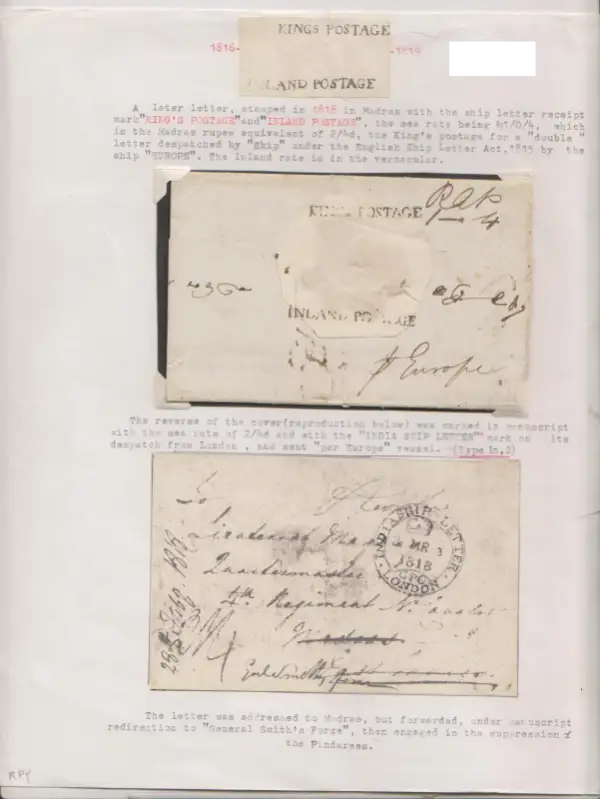 KINGS POSTAGE
1816-
-1819
INLAND POSTAGE
A later letter, stamped in 1818 in Madras with the ship letter receipt
mark"KING'S POSTAGE"and"INLAND POSTAGE", the sea rate being R1/0/4, which
is the Madras rupee equivalent of 2/4d, the King's postage for a "double "
letter despatched by "Ship" under the English Ship Letter Act,1815 by the
ship "EUROPE". The Inland rate is in the vernacular.
KINGS POSTAGE
4
INLAND POSTAGE
Europe
The reverse of the cover(reproduction below) was marked in manuscript
with the sea rate of 2/4d and with the "INDIA SHIP LETTER" mark on its
despatch from London , and sent "per Europe" vessel. (Type In.2)
To
Lieutenant
Quartermaster
4th Regiment N.
Madras
INDIA SHIP LETTER
MR 3
1818
GPO
LONDON
The letter was addressed to Madras, but forwarded, under manuscript
redirection to "General Smith's Force", then engaged in the supression of
the Pindarees.
RPY